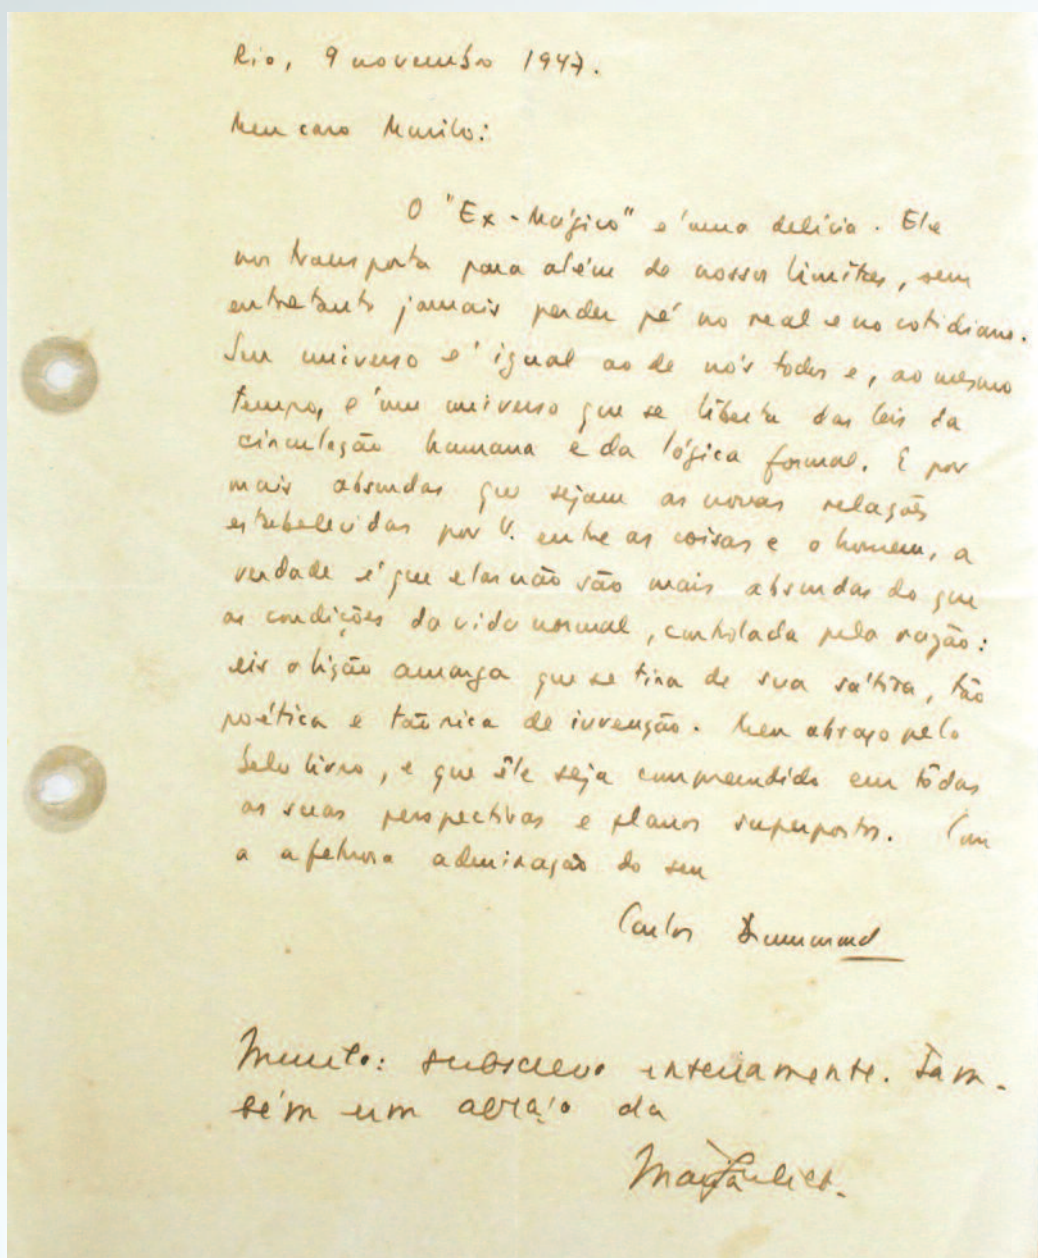 Rio, 9 novembro 1947.
Meu caro Murilo:
O "Ex-Mágico" é uma delícia. Ele
nos transporta para além de nossos limites, sem
entretanto jamais perder pé no real e no cotidiano.
Seu universo é igual ao de nós todos e, ao mesmo
tempo, é um universo que se liberta das leis da
circulação humana e da lógica formal. E por
mais absurdas que sejam as novas relações
estabelecidas por V. entre as coisas e o homem, a
verdade é que elas não são mais absurdas do que
as condições da vida normal, controlada pela razão:
eis a lição amarga que se tira de sua sátira, tão
poética e tão rica de invenção. Meu abraço pelo
belo livro, e que êle seja compreendido em tôdas
as suas perspectivas e planos superpostos. Com
a afetuosa admiração do seu
Carlos Drummond
Murilo: subscrevo inteiramente. Tam-
bém um abraço da
Maria Julieta.